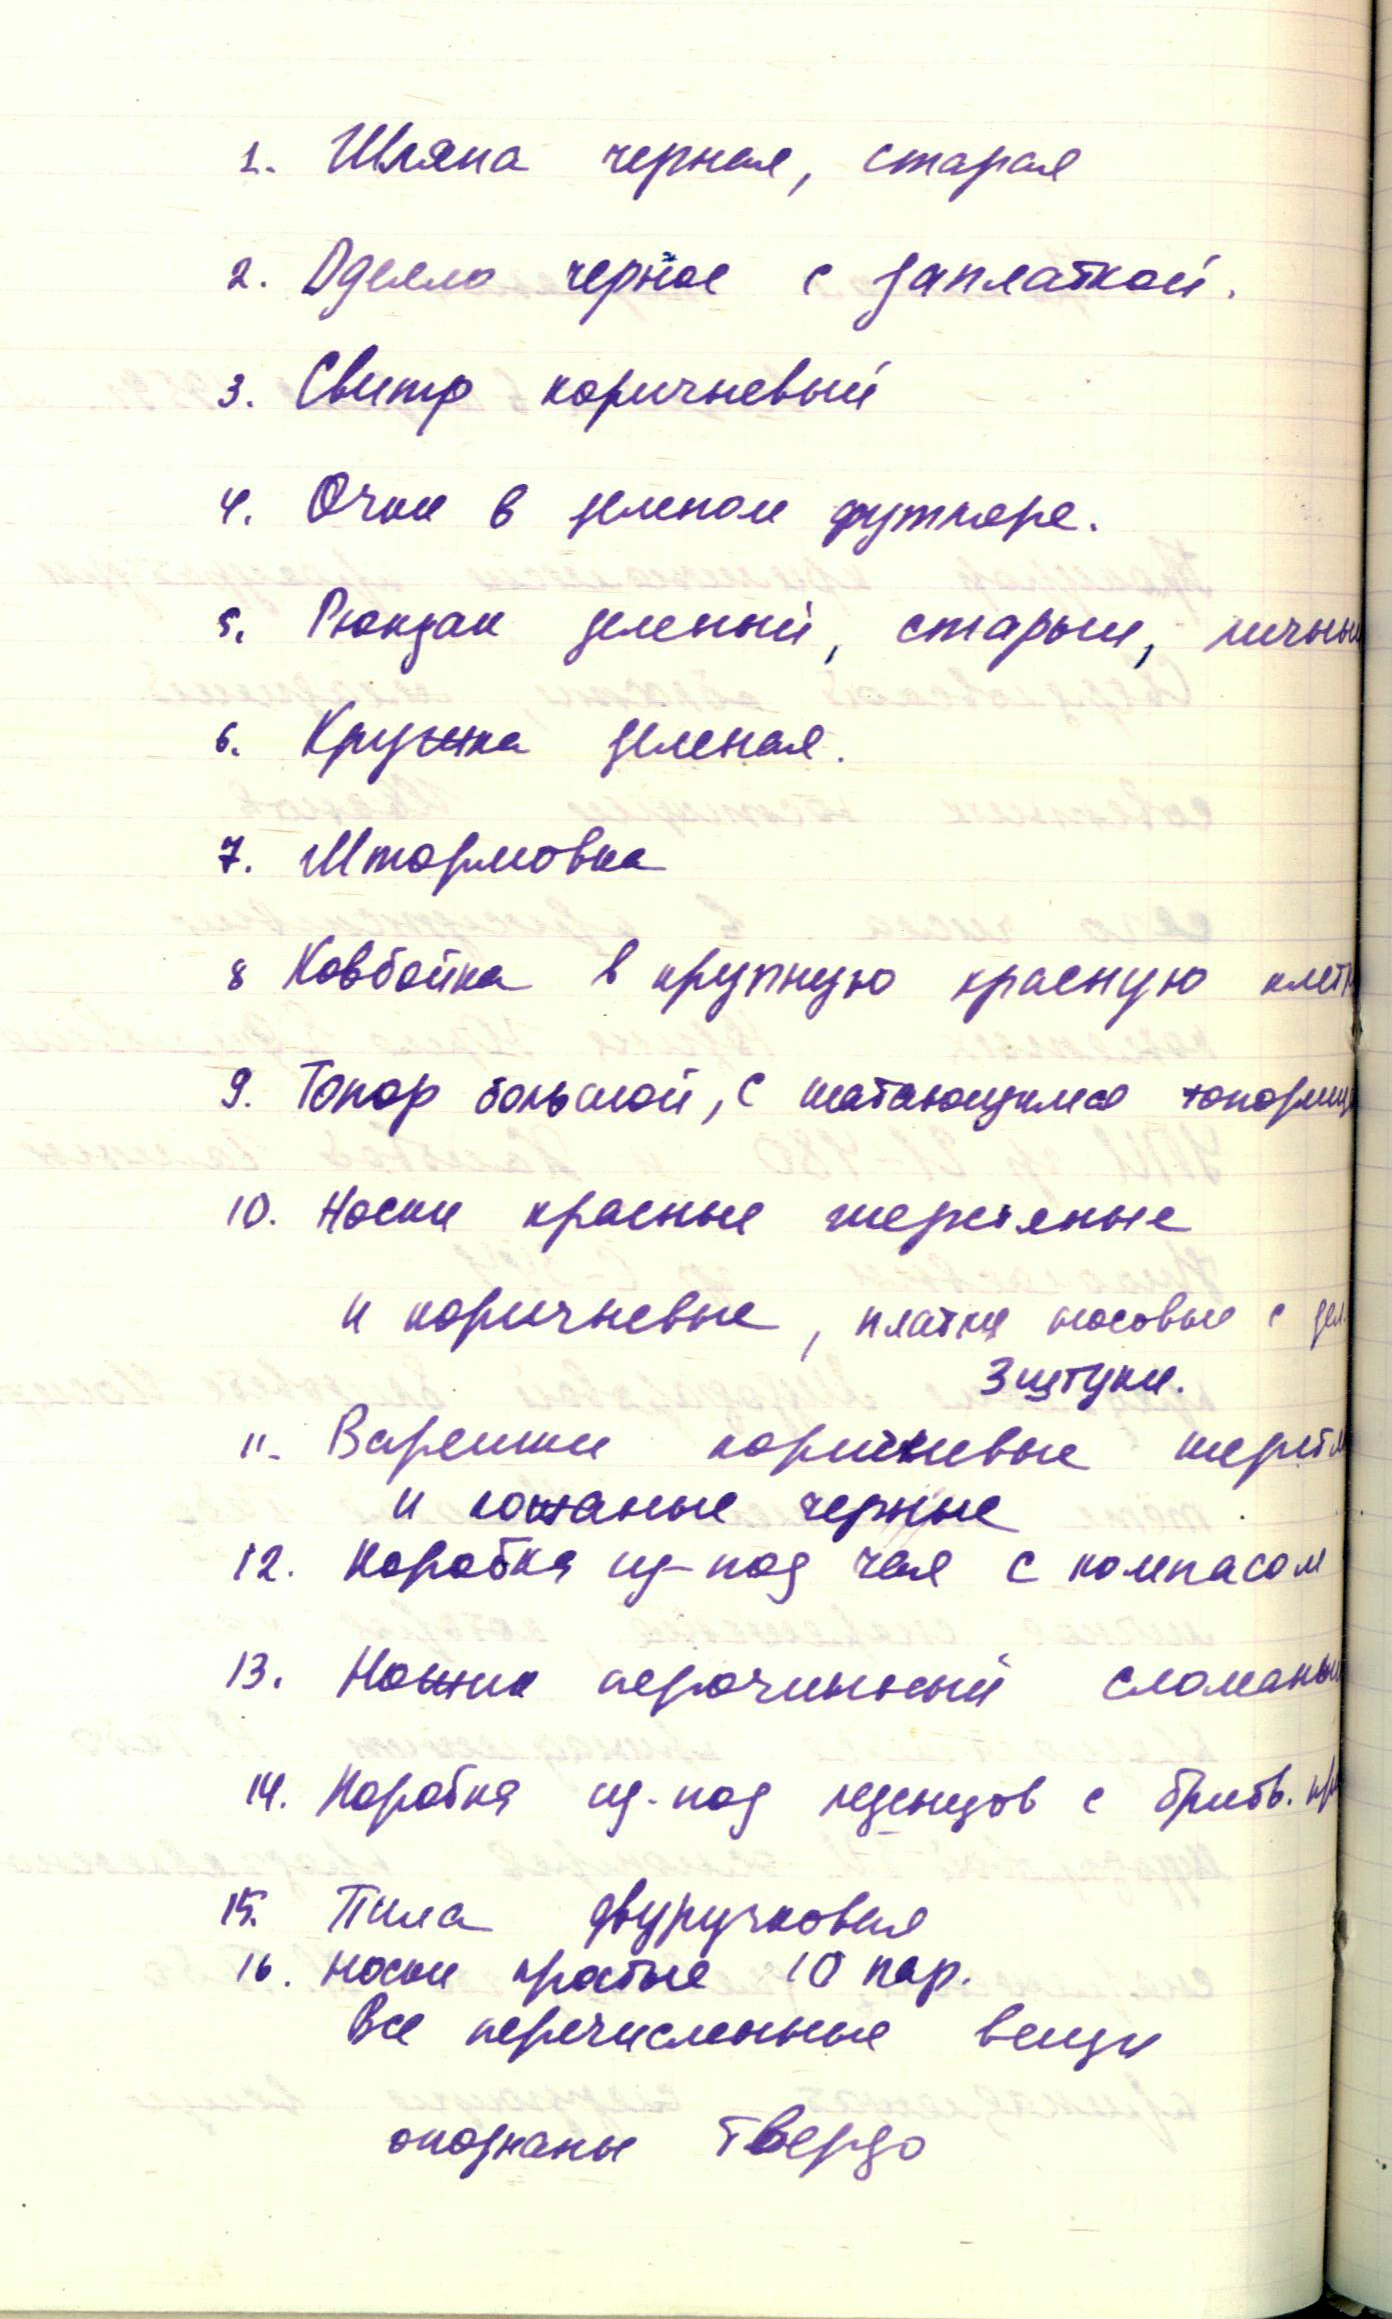 1. Шляпа черная, старая
2. Одеяло черное с заплаткой.
3. Свитр коричневый
4. Очки в зеленом футляре.
5. Рюкзак зеленый, старый, личный
6. Кружка зеленая.
7. Штормовка
8 Ковбойка в крупную красную клетк
9. Топор большой, с шатающимся топорищ
10. Носки красные шерстяные
и коричневые, платки носовые с
3 штуки.
11. Варешки коричневые шерстя
и кожаные черные
12. Коробка из-под чая с компасом
13. Ножик перочинный сломаный
14. Коробка из-под леденцов с бритв. пр
15. Пила двуручковая
16. Носки простые 10 пар.
Все перечисленные вещи
опознаны твердо